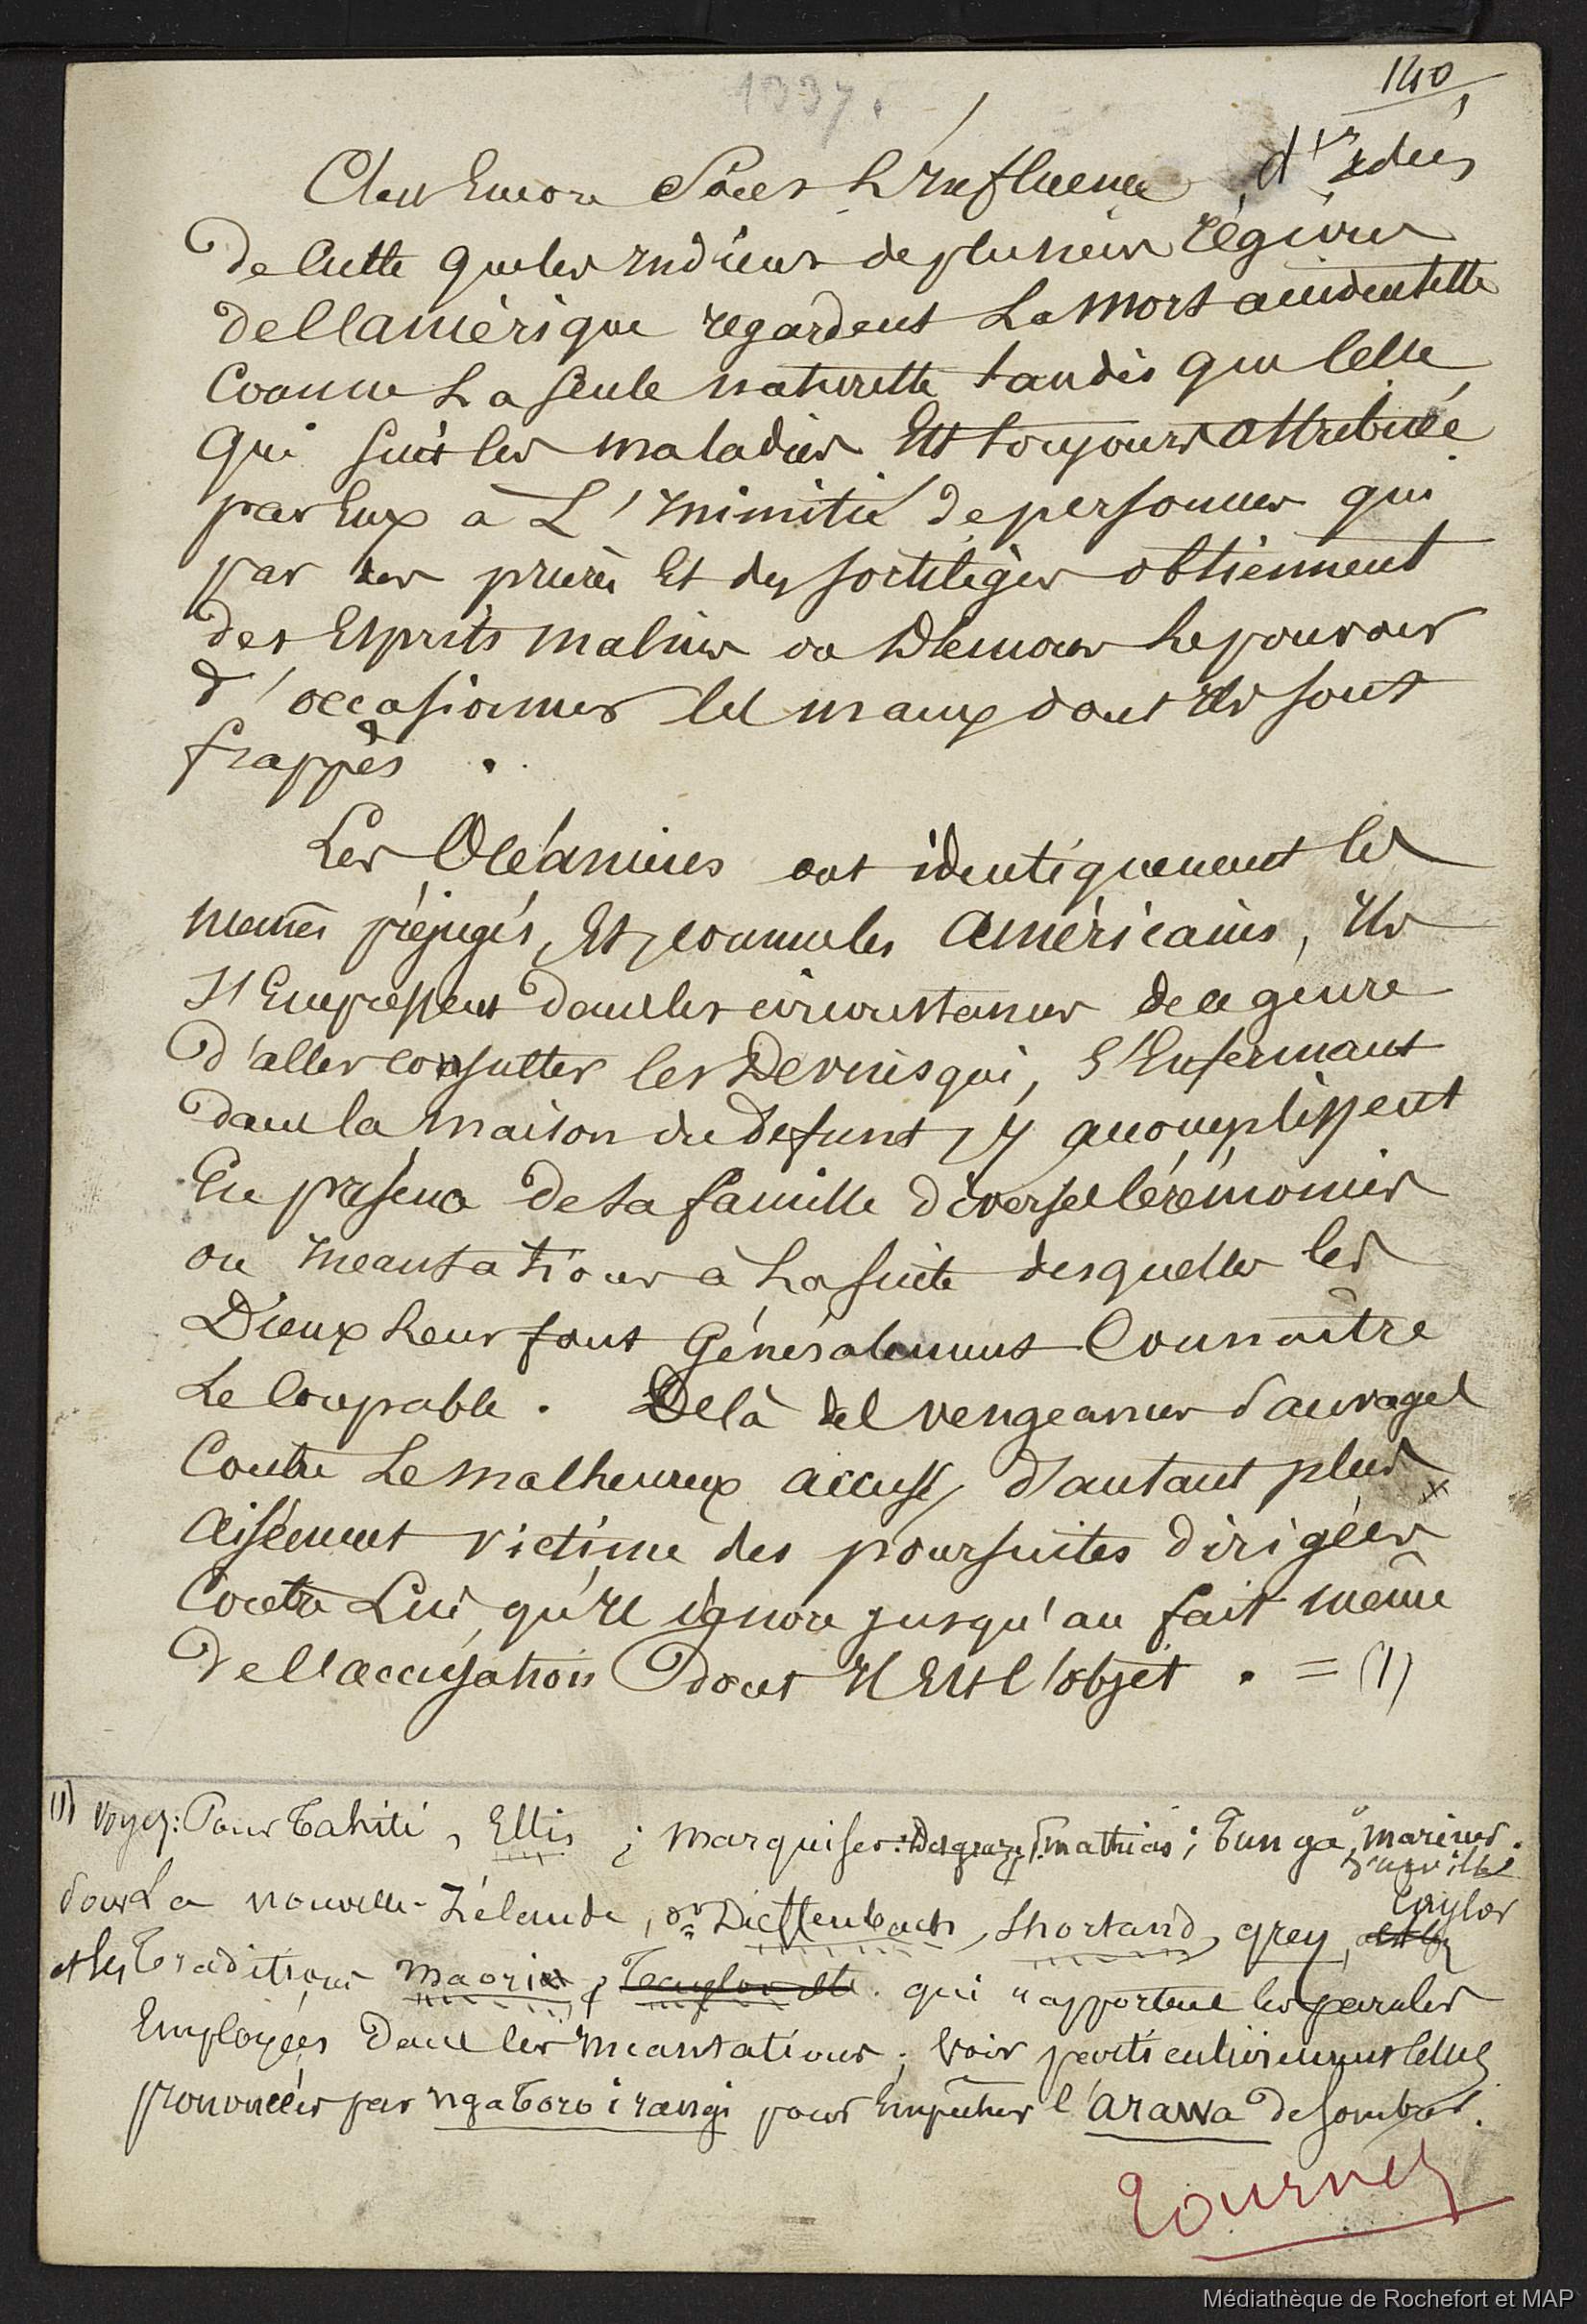 140
1997.
C'est Encore Sous L'Influence d'Idées
de Culte que les Indiens de plusieurs régions
de l'amérique regardent La Mort accidentelle
Comme La seule naturelle tandis que Celle
qui suit les maladies Est toujours attribuée
par Eux à L'Inimitié de personnes qui
par des prières Et des sortilèges obtiennent
des Esprits malins ou Démons Le pouvoir
d'occasionner les maux dont Ils sont
frappés.
Les Océaniens ont identiquement les
mêmes préjugés, Et, comme les Américains, Ils
s'Empressent dans les circonstances de ce genre
d'aller consulter les Devins qui, s'Enfermant
dans la maison du défunt, y accomplissent
En présence de sa famille diverses Cérémonies
ou Incantations à La suite desquelles les
Dieux Leur font Généralement Connaître
Le Coupable. De là des vengeances sauvages
Contre Le malheureux accusé, d'autant plus
aisément victime des poursuites dirigées
Contre Lui, qu'Il ignore jusqu'au fait même
de l'accusation dont Il Est l'objet. = (1)
(1) Voyez: Pour Tahiti, Ellis; marquises: Desgraz, mathias; Tunga, mariner.
d'urville
Pour La nouvelle-Zélande, dr Dieffenbach, Shortand, grey, Taylor
et les Traditions maories, Taylor etc. qui rapportent les paroles
Employées dans les Incantations; Voir particulièrement Celles
prononcées par ngatoro i rangi pour Empêcher l'arawa de sombrer.
Tournez
Médiathèque de Rochefort et MAP